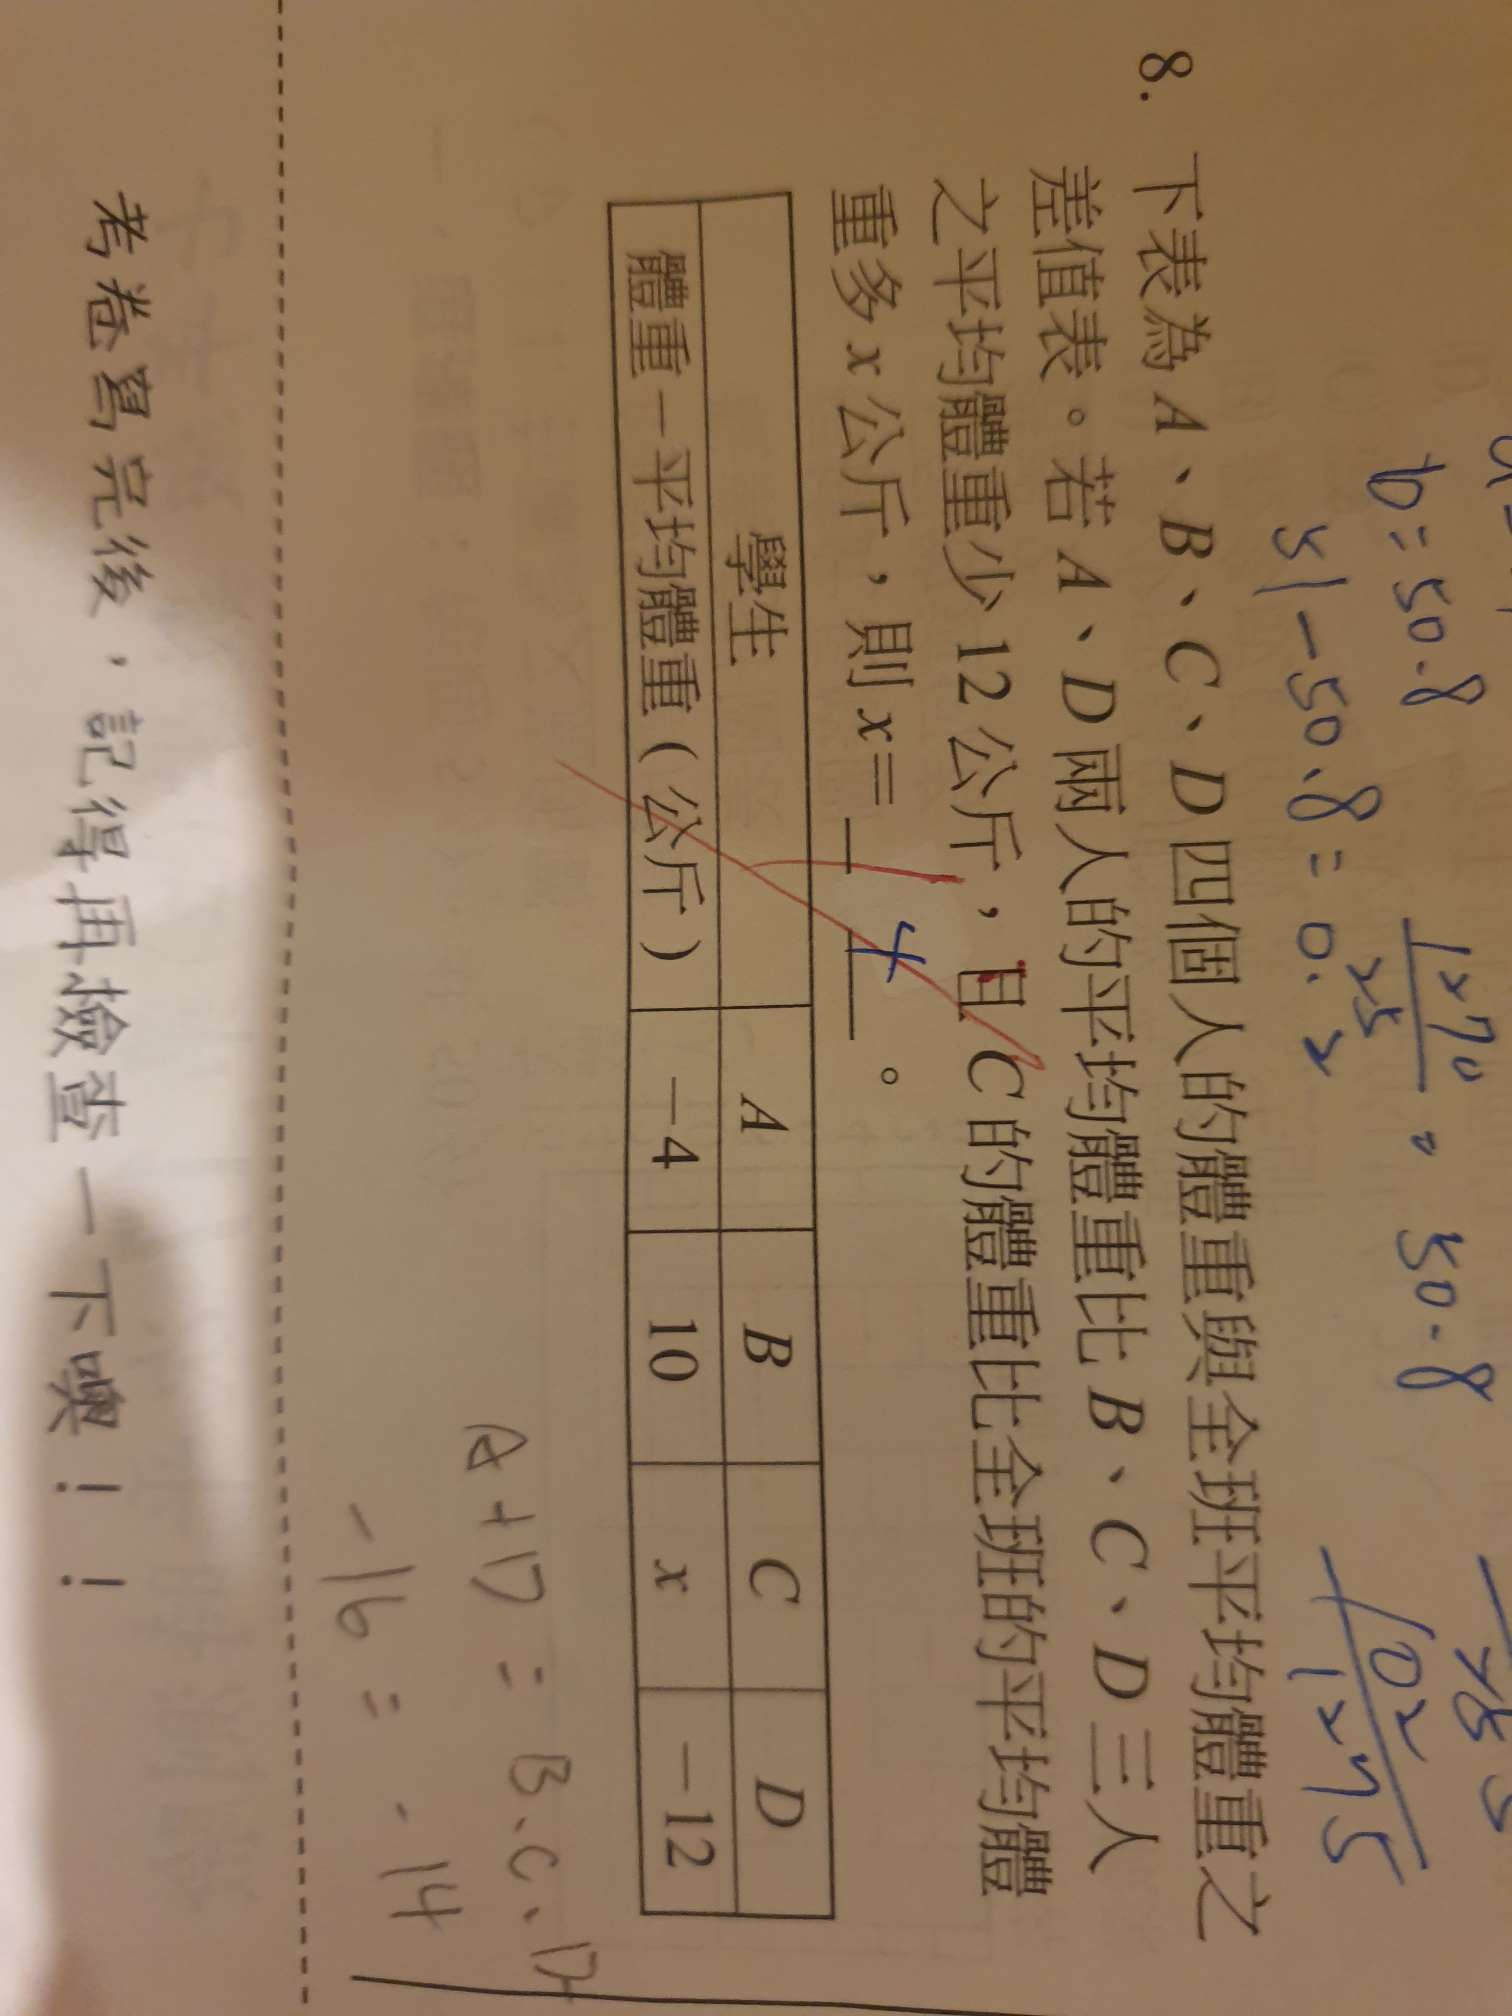 b=50.8
1270
25
= 50.8
51-50.8=0.2
102
1275
8. 下表為 A、B、C、D 四個人的體重與全班平均體重之
差值表。若 A、D 兩人的平均體重比 B、C、D 三人
之平均體重少 12 公斤，且 C 的體重比全班的平均體
重多 x 公斤，則 x= 4 。
學生 A B C D
體重－平均體重(公斤) －4 10 x －12
A+D = B、C、D
-16 = -14
考卷寫完後，記得再檢查一下噢！！